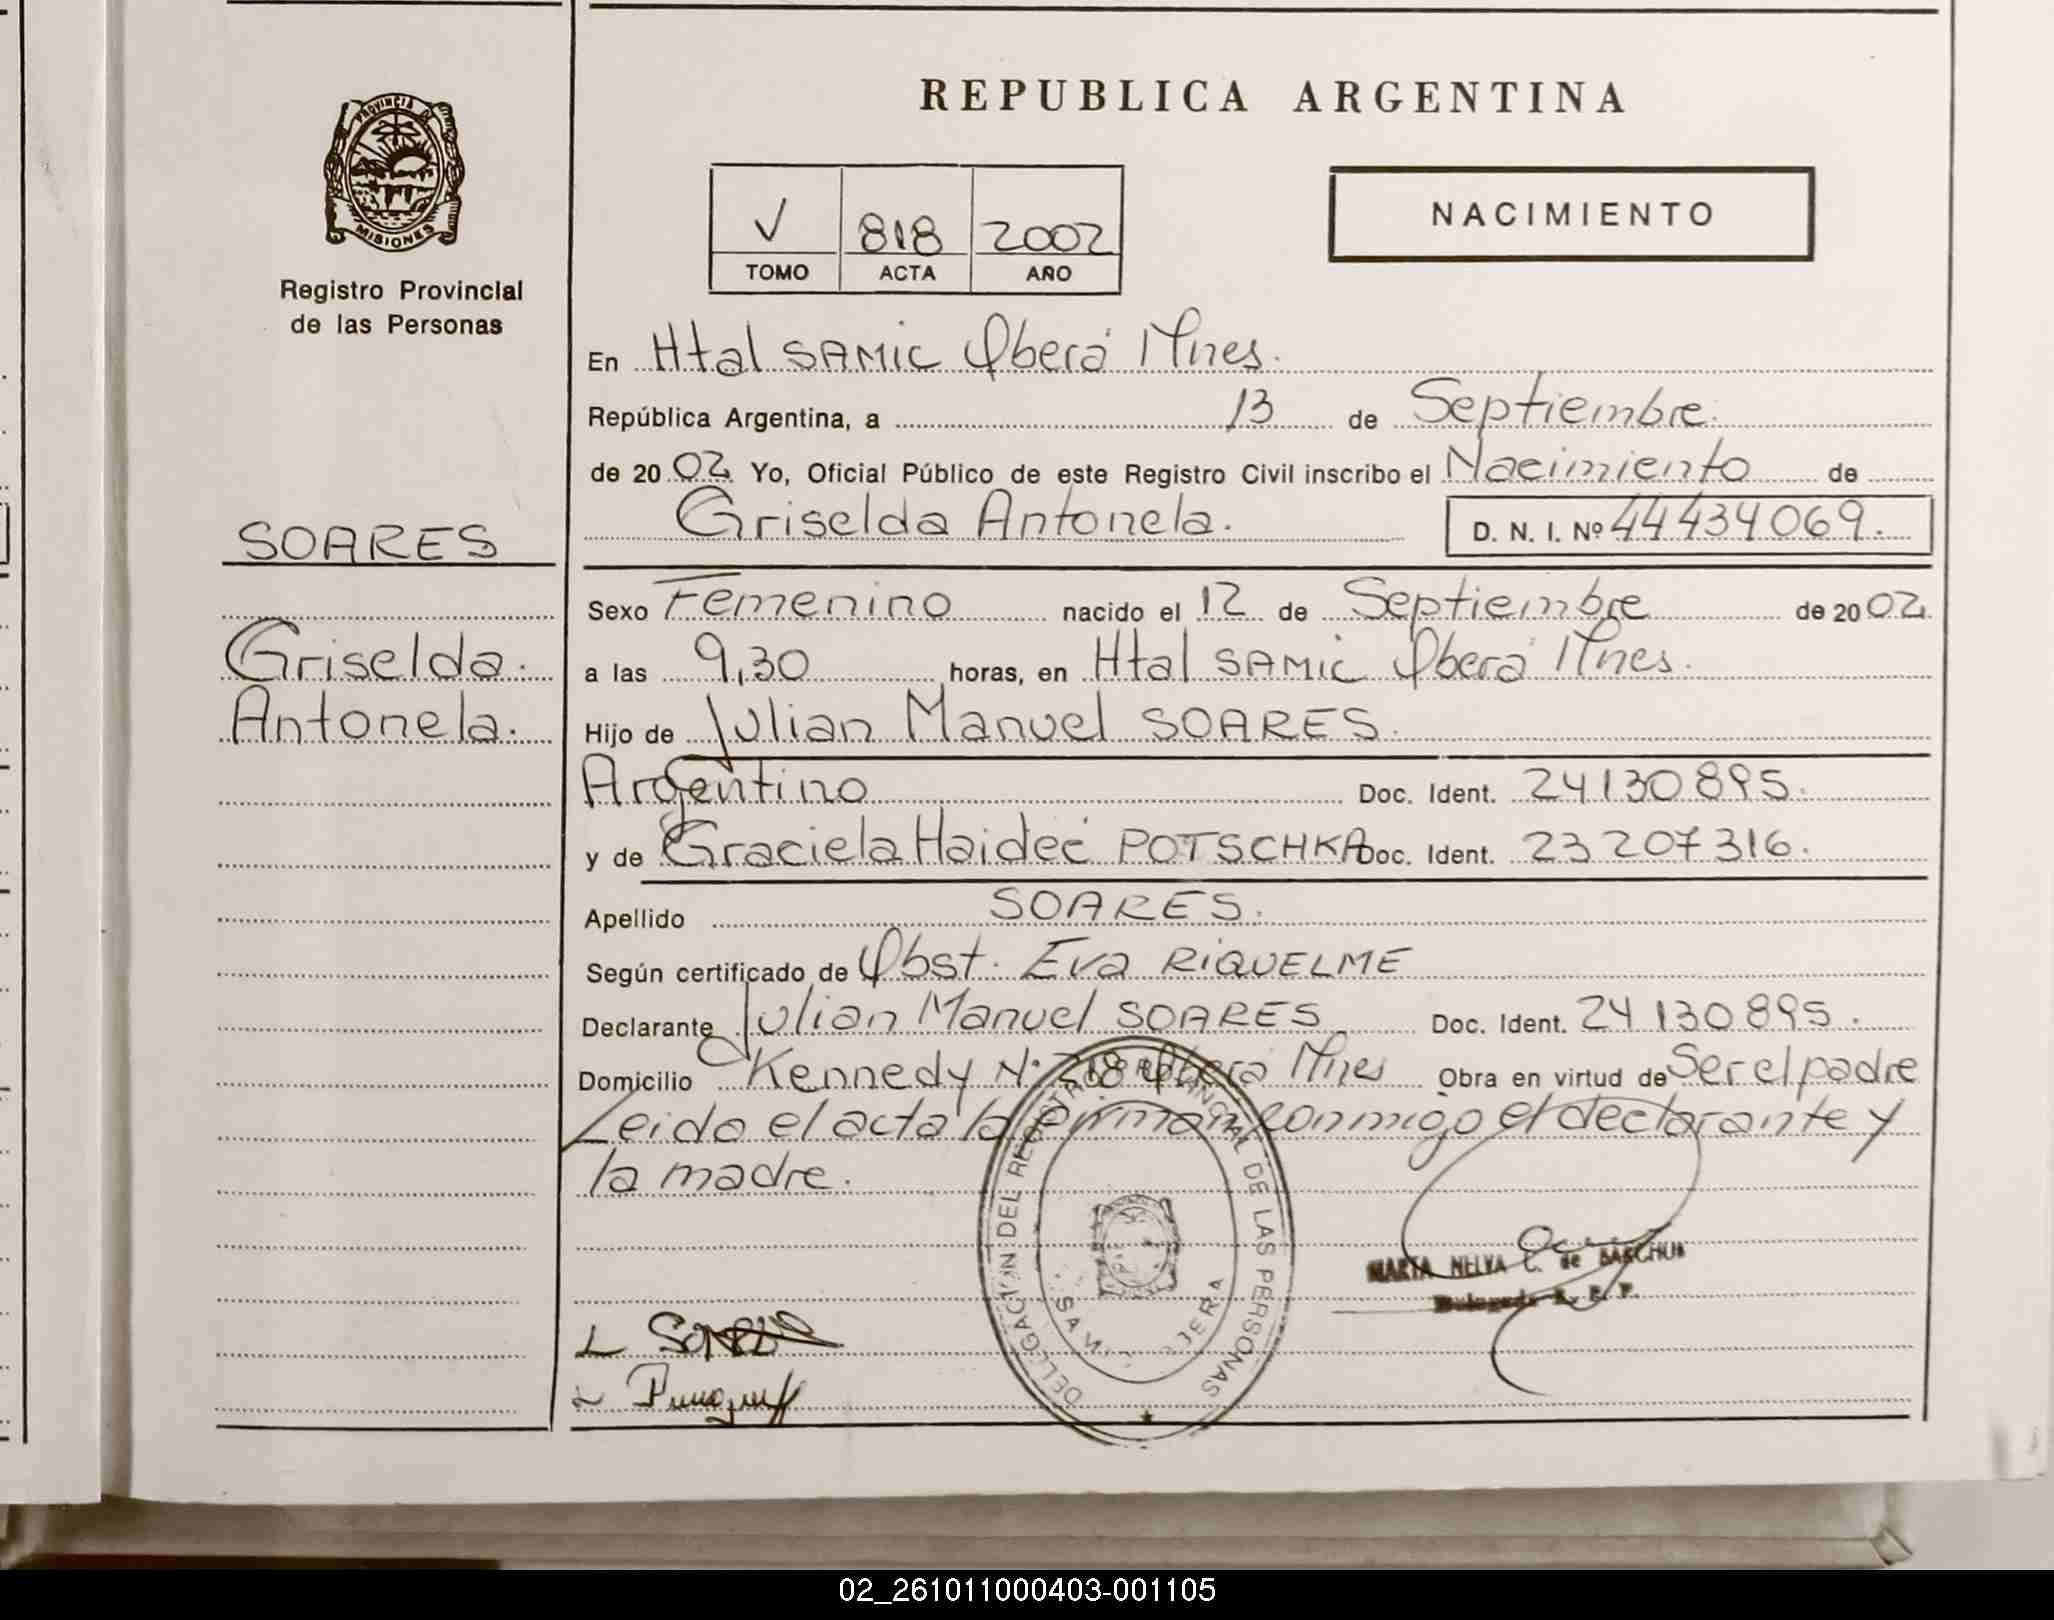 REPUBLICA ARGENTINA
PROVINCIA DE MISIONES
Registro Provincial
de las Personas
V 818 2002
TOMO ACTA AÑO
NACIMIENTO
En Htal SAMIC Oberá Mnes.
República Argentina, a 13 de Septiembre.
de 20 02 Yo, Oficial Público de este Registro Civil inscribo el Nacimiento de
Griselda Antonela. D. N. I. Nº 44434069.
SOARES
Griselda
Antonela.
Sexo Femenino nacido el 12 de Septiembre de 20 02.
a las 9,30 horas, en Htal SAMIC Oberá Mnes.
Hijo de Julian Manuel SOARES.
Argentino Doc. Ident. 24130895.
y de Graciela Haideé POTSCHKA Doc. Ident. 23207316.
Apellido SOARES.
Según certificado de Obst. Eva RIQUELME
Declarante Julian Manuel SOARES Doc. Ident. 24130895.
Domicilio Kennedy Nº 718 Oberá Mnes Obra en virtud de Ser el padre
Leido el acta la firman conmigo el declarante y
la madre.
DELEGACIÓN DEL REGISTRO PROVINCIAL DE LAS PERSONAS
MARTA NELVA C. de
Delegada R. P. P.
02_261011000403-001105